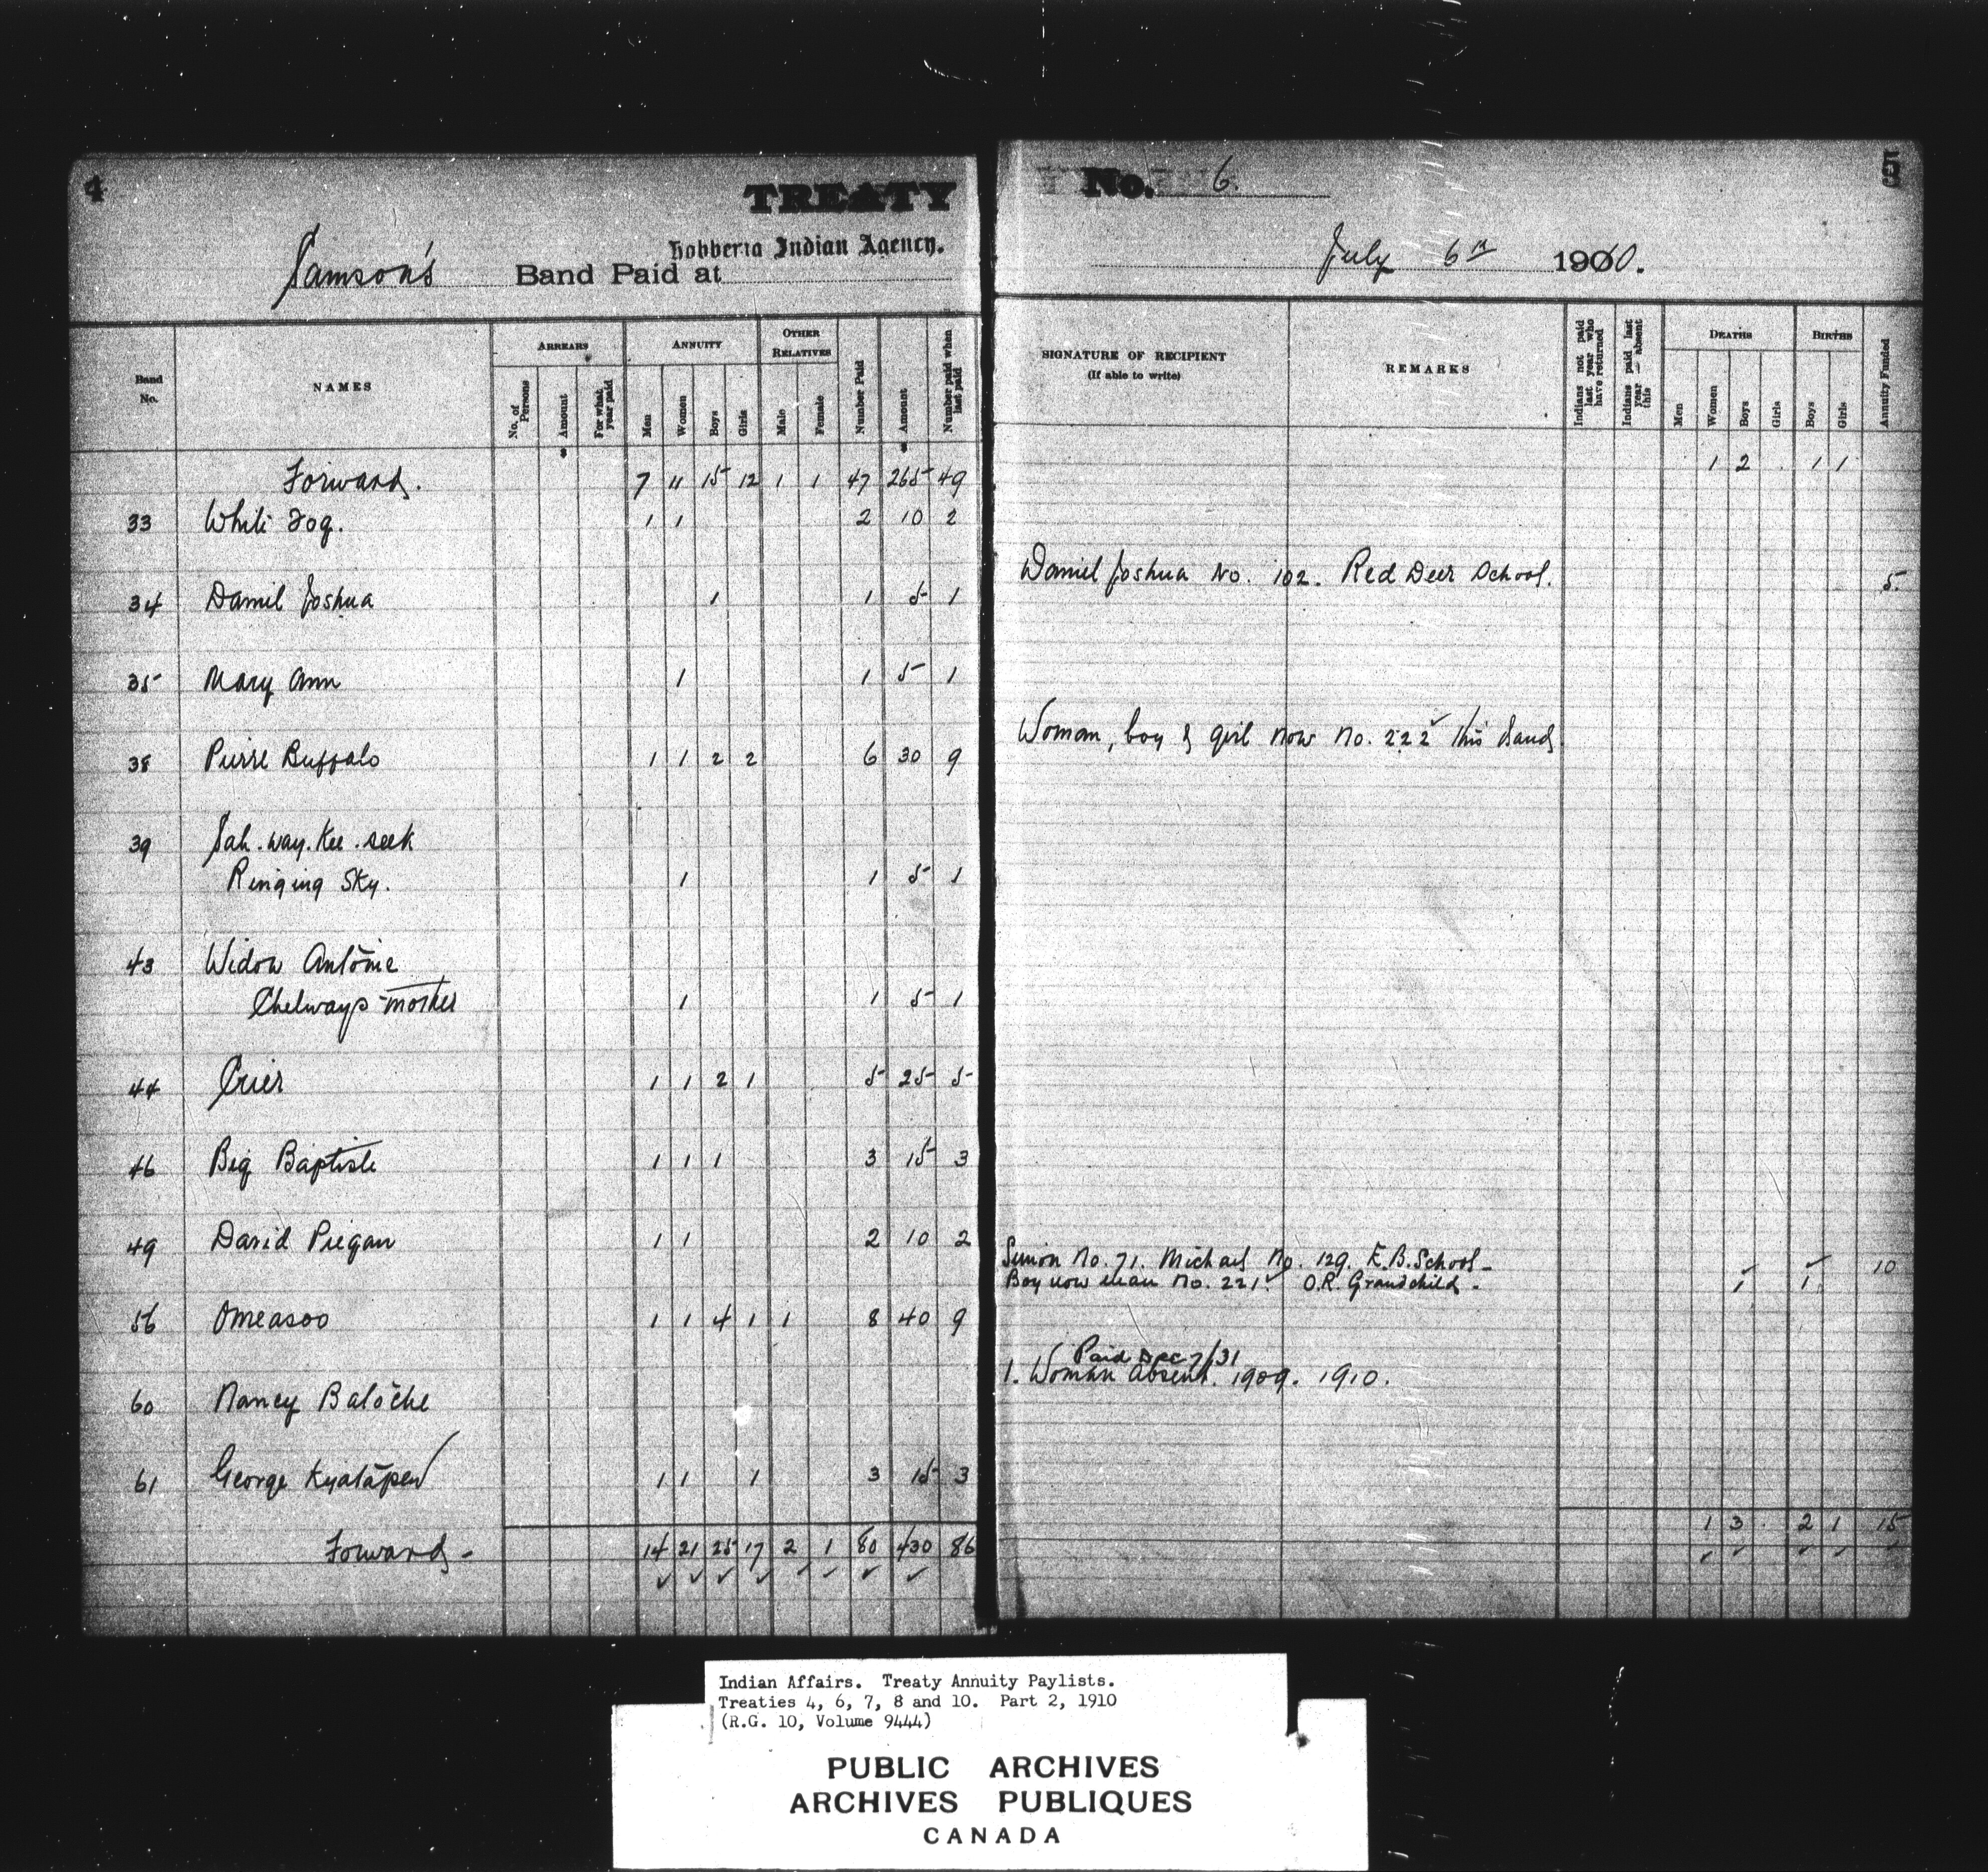 4
TREATY
No. 6.
5
Hobbema Indian Agency.
Samson's Band Paid at
July 6th 1910.
Band No.
NAMES
ARREARS
No. of Persons
Amount
For what year paid
ANNUITY
Men
Women
Boys
Girls
OTHER RELATIVES
Male
Female
Number Paid
Amount
Number paid when last paid
SIGNATURE OF RECIPIENT
(If able to write)
REMARKS
Indians not paid last year who have returned
Indians paid last year — absent this
DEATHS
Men
Women
Boys
Girls
BIRTHS
Boys
Girls
Annuity Funded
Forward. 7 11 15 12 1 1 47 265 49 1 2 . 1 1
33 White Dog. 1 1 2 10 2
34 Daniel Joshua 1 1 5 1 Daniel Joshua No. 102. Red Deer School. 5.
35 Mary Ann 1 1 5 1
38 Pierre Buffalo 1 1 2 2 6 30 9 Woman, boy & girl now No. 222 ✓ this band
39 Sah.way.kee.seek
Ringing Sky. 1 1 5 1
43 Widow Antoine
Chelways mother 1 1 5 1
44 Crier 1 1 2 1 5 25 5
46 Big Baptiste 1 1 1 3 15 3
49 David Piegan 1 1 2 10 2
Simon No. 71. Michael No. 129. E.B. School - 10
Boy now man No. 221. ✓ O.R. Grandchild - ✓ 1 ✓ 1
56 Omeasoo 1 1 4 1 1 8 40 9
Paid Dec 7/31
1. Woman Absent. 1909. 1910.
60 Nancy Batoche
61 George Kyatapew 1 1 1 3 15 3
Forward - 14 21 25 17 2 1 80 430 86 1 3 . 2 1 15
✓ ✓ ✓ ✓ ✓ ✓ ✓ ✓ ✓ ✓ ✓ ✓ ✓
Indian Affairs. Treaty Annuity Paylists.
Treaties 4, 6, 7, 8 and 10. Part 2, 1910
(R.G. 10, Volume 9444)
PUBLIC ARCHIVES
ARCHIVES PUBLIQUES
CANADA